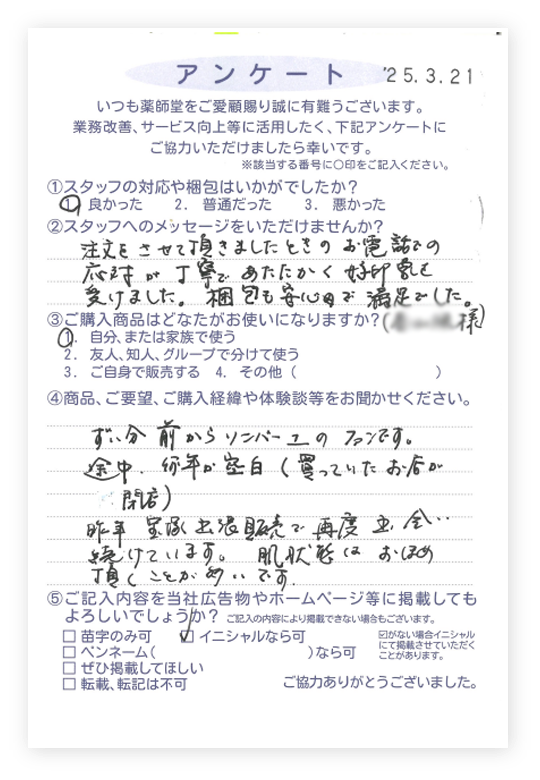 アンケート '25.3.21
いつも薬師堂をご愛顧賜り誠に有難うございます。
業務改善、サービス向上等に活用したく、下記アンケートに
ご協力いただけましたら幸いです。
※該当する番号に○印をご記入ください。
①スタッフの対応や梱包はいかがでしたか?
1. 良かった 2. 普通だった 3. 悪かった
②スタッフへのメッセージをいただけませんか?
注文をさせて頂きましたときのお電話での
応対が丁寧であたたかく好印象を
受けました。梱包も安心内で満足でした。
③ご購入商品はどなたがお使いになりますか?( 様)
1. 自分、または家族で使う
2. 友人、知人、グループで分けて使う
3. ご自身で販売する 4. その他( )
④商品、ご要望、ご購入経緯や体験談等をお聞かせください。
ずい分前からソンバーユのファンです。
途中、何年か空白(買っていたお店が
閉店)
昨年 出張販売で再度出会い
続けています。肌状態はおほめ
頂くことが多いです.
⑤ご記入内容を当社広告物やホームページ等に掲載しても
よろしいでしょうか? ご記入の内容により掲載できない場合もございます。
□ 苗字のみ可 ☑ イニシャルなら可
□ ペンネーム( )なら可
□ ぜひ掲載してほしい
□ 転載、転記は不可
☑がない場合イニシャル
にて掲載させていただく
ことがあります。
ご協力ありがとうございました。